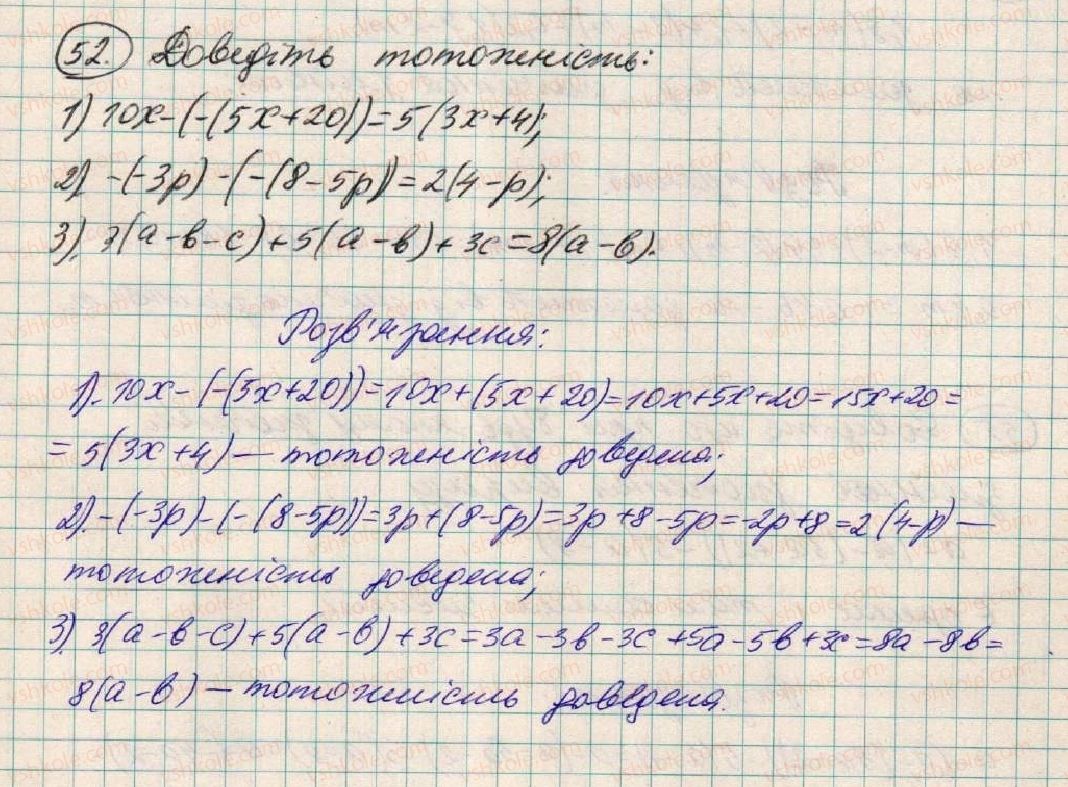 52. Доведіть тотожність:
1) 10x-(-(5x+20))=5(3x+4);
2) -(-3p)-(-(8-5p))=2(4-p);
3). 3(a-в-c)+5(a-в)+3c=8(a-в).
Розв'язання:
1). 10x-(-(5x+20))=10x+(5x+20)=10x+5x+20=15x+20=
=5(3x+4) — тотоженість доведена;
2). -(-3p)-(-(8-5p))=3p+(8-5p)=3p+8-5p=-2p+8=2(4-p) —
тотоженість доведена;
3). 3(a-в-c)+5(a-в)+3c=3a-3в-3c+5a-5в+3c=8a-8в=
8(a-в) — тотожність доведена.